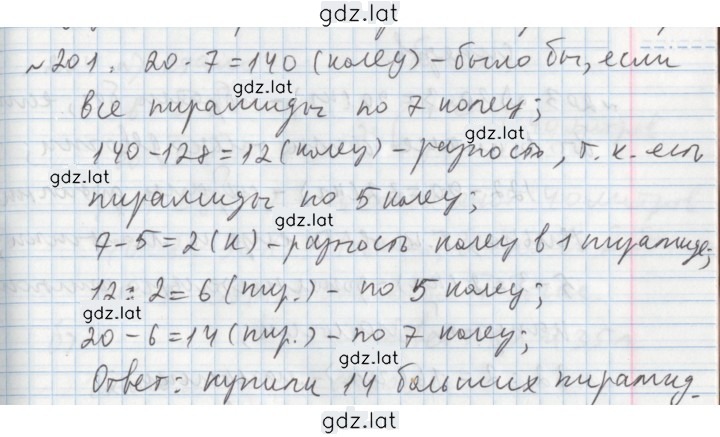 gdz.lat
№201. 20·7=140 (колец) – было бы, если
gdz.lat
все пирамиды по 7 колец;
gdz.lat
140-128=12 (колец) – разность, т. к. есть
gdz.lat
пирамиды по 5 колец;
gdz.lat
7-5=2(к) – разность колец в 1 пирамиде;
gdz.lat
12:2=6 (пир.) – по 5 колец;
20-6=14 (пир.) – по 7 колец;
gdz.lat
Ответ: купили 14 больших пирамид.
gdz.lat